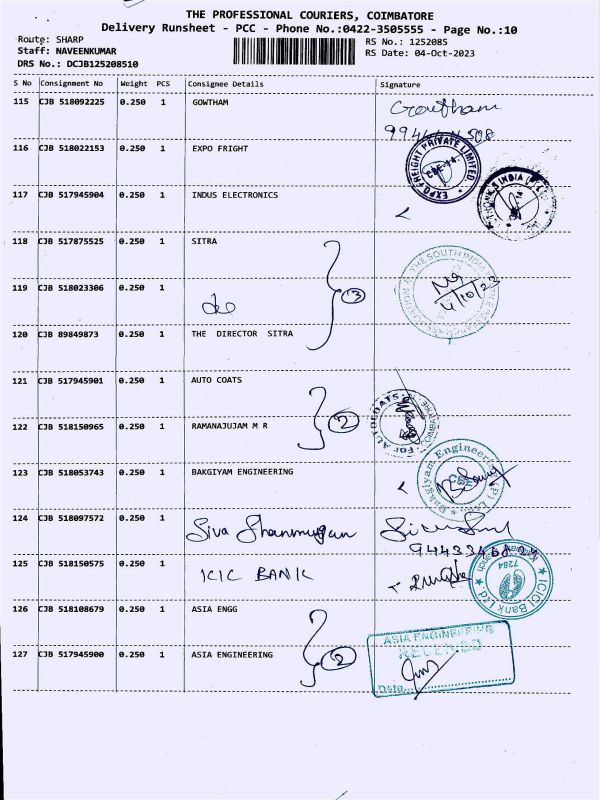 THE PROFESSIONAL COURIERS, COIMBATORE
Delivery Runsheet - PCC - Phone No.:0422-3505555 - Page No.:10
Route: SHARP
Staff: NAVEENKUMAR
DRS No.: DCJB125208510
RS No.: 1252085
RS Date: 04-Oct-2023
S No Consignment No Weight PCS Consignee Details Signature
115 CJB 518092225 0.250 1 GOWTHAM Gowtham
116 CJB 518022153 0.250 1 EXPO FRIGHT
EXPO FREIGHT PRIVATE LIMITED
117 CJB 517945904 0.250 1 INDUS ELECTRONICS
118 CJB 517875525 0.250 1 SITRA
THE SOUTH INDIA
4/10/23
119 CJB 518023306 0.250 1 do 3
120 CJB 89849873 0.250 1 THE DIRECTOR SITRA
121 CJB 517945901 0.250 1 AUTO COATS
For AUTOCOATS
122 CJB 518150965 0.250 1 RAMANAJUJAM M R 2
123 CJB 518053743 0.250 1 BAKGIYAM ENGINEERING
Bakgiyam Engineering (P) Ltd
CBE
124 CJB 518097572 0.250 1 Siva Shanmugan
125 CJB 518150575 0.250 1 ICIC BANK
ICICI Bank Ltd
7284
126 CJB 518108679 0.250 1 ASIA ENGG
127 CJB 517945900 0.250 1 ASIA ENGINEERING 2
ASIA ENGINEERING
RECEIVED
Date